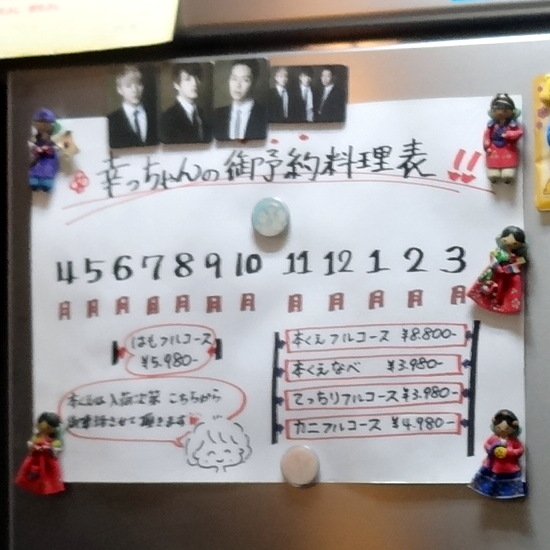 幸っちゃんの御予約料理表!!
4 5 6 7 8 9 10 11 12 1 2 3
月 月 月 月 月 月 月 月 月 月 月 月
はもフルコース
¥5.980-
本くえフルコース ¥8.800-
本くえなべ ¥3.980-
てっちりフルコース ¥3.980-
カニフルコース ¥4.980-
本くえは入荷次第 こちらから
お電話させて頂きます